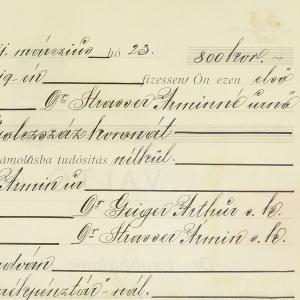 márczius hó 23. 800 kor.
fizessen Ön ezen első
Dr Strasser Árminné urnő
nyolczszáz koronát
számolásba tudósítás nélkül.
Ármin úr
Dr Geiger Arthur s. k.
Dr Strasser Ármin s. k.
nál.